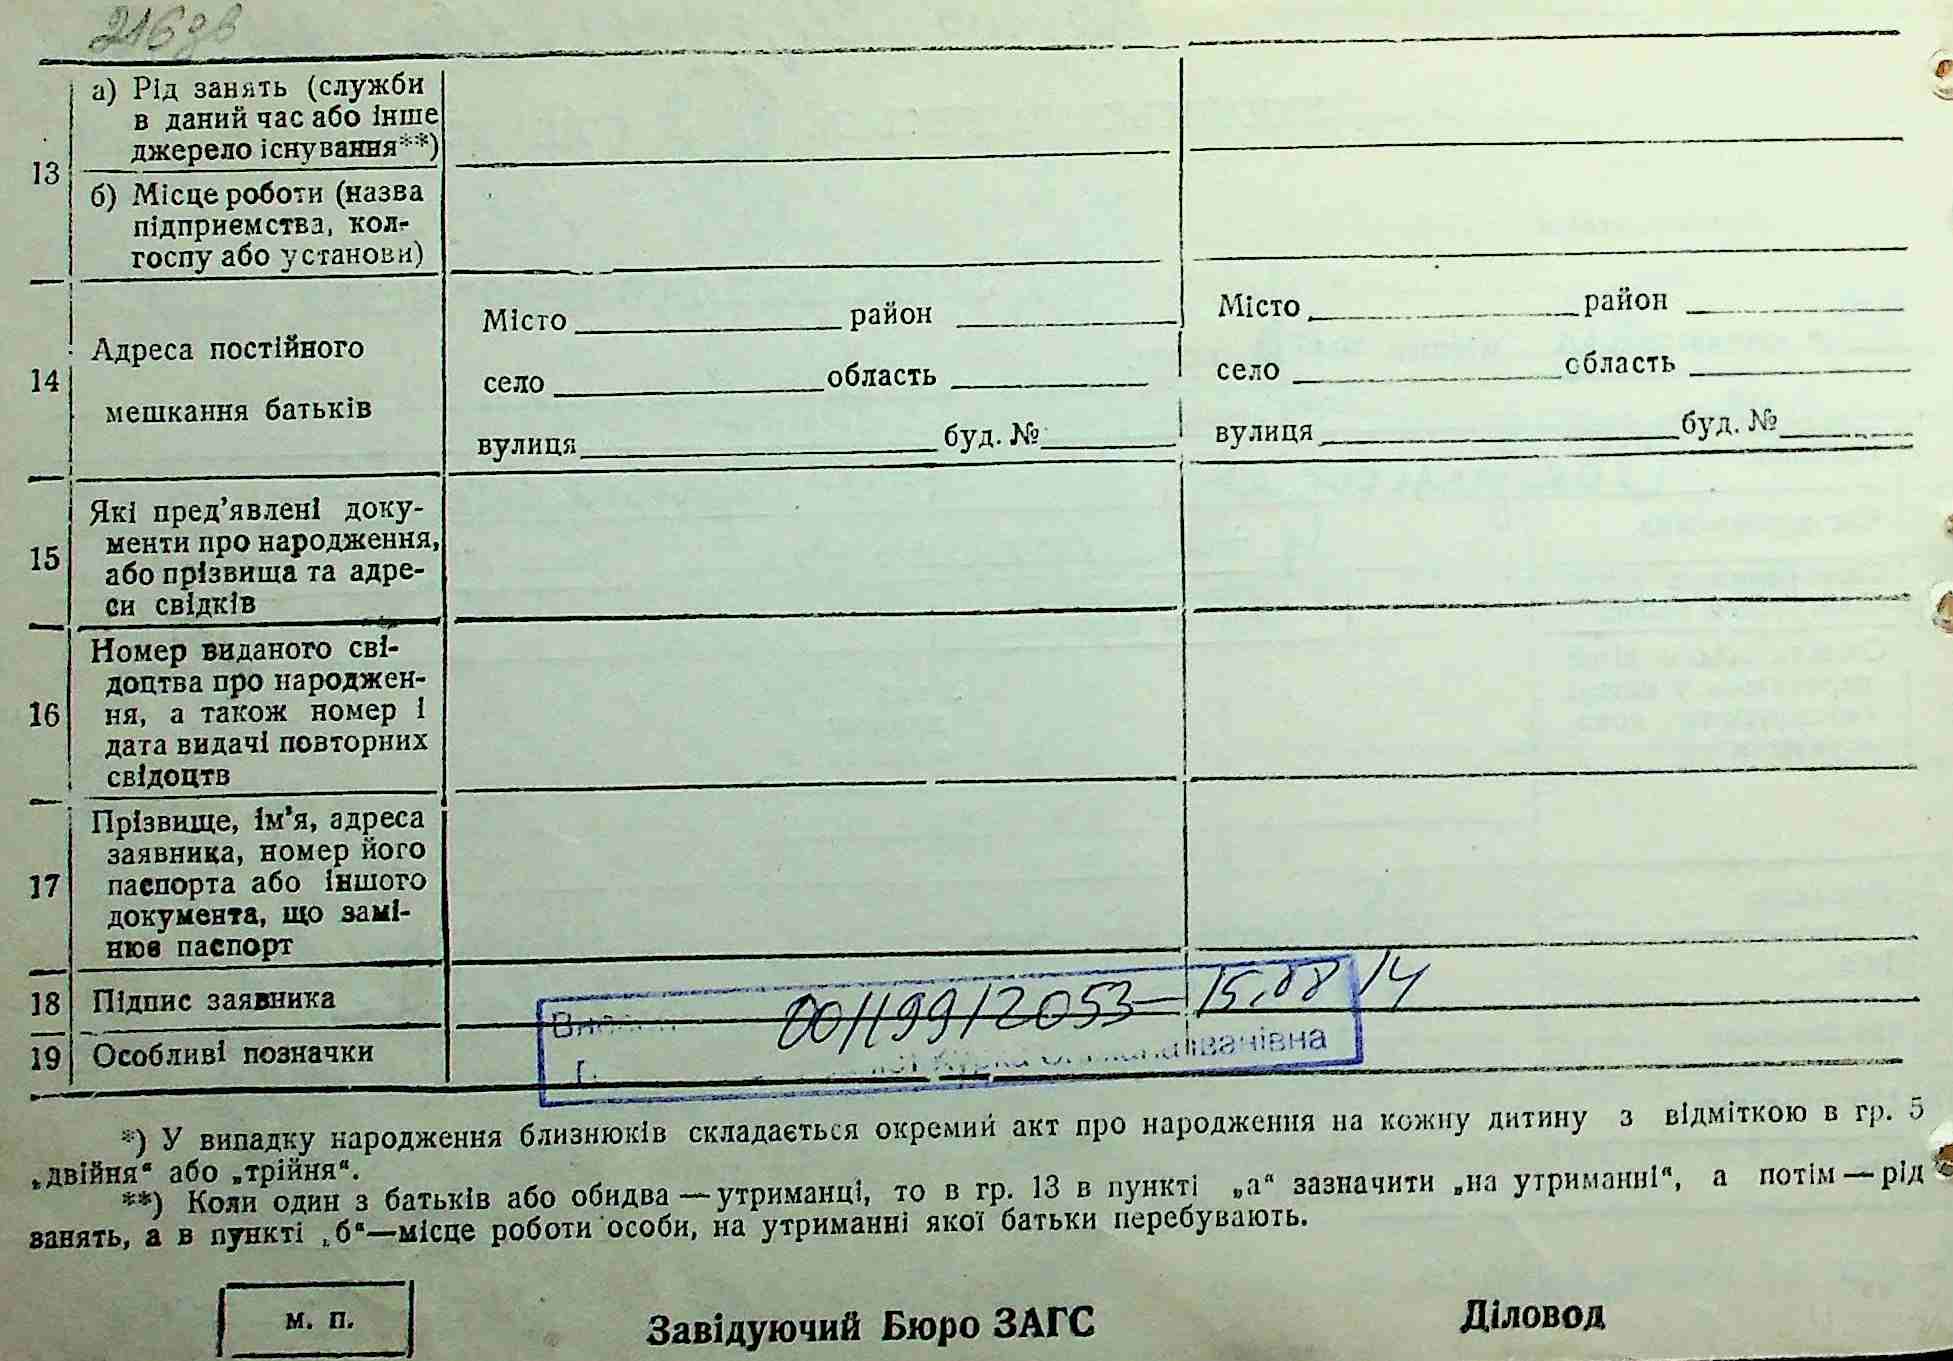 216зв
13
а) Рід занять (служби
в даний час або інше
джерело існування**)
б) Місце роботи (назва
підприємства, кол-
госпу або установи)
14
Адреса постійного
мешкання батьків
Місто район
село область
вулиця буд. №
Місто район
село область
вулиця буд. №
15
Які пред'явлені доку-
менти про народження,
або прізвища та адре-
си свідків
16
Номер виданого сві-
доцтва про народжен-
ня, а також номер і
дата видачі повторних
свідоцтв
17
Прізвище, ім'я, адреса
заявника, номер його
паспорта або іншого
документа, що замі-
нює паспорт
18 Підпис заявника
00119912053 — 15.08 14
19 Особливі позначки
Іванівна
*) У випадку народження близнюків складається окремий акт про народження на кожну дитину з відміткою в гр. 5
„двійня“ або „трійня“.
**) Коли один з батьків або обидва — утриманці, то в гр. 13 в пункті „а“ зазначити „на утриманні“, а потім — рід
занять, а в пункті „б“—місце роботи особи, на утриманні якої батьки перебувають.
м. п.
Завідуючий Бюро ЗАГС
Діловод